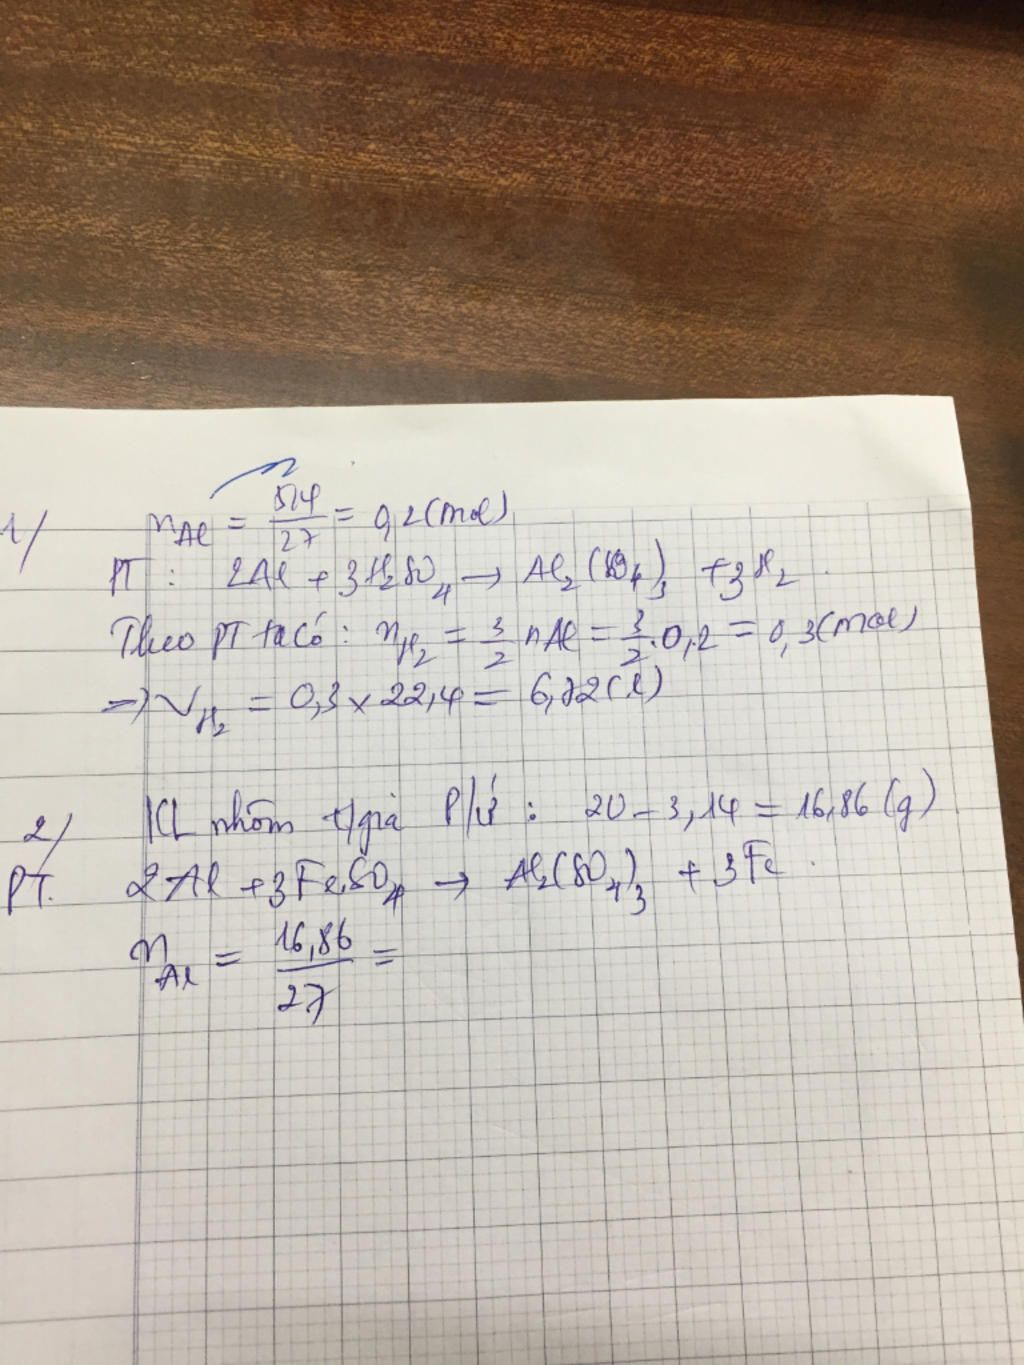 1/ nAl = 5,4/27 = 0,2 (mol)
PT: 2Al + 3H2SO4 → Al2(SO4)3 + 3H2
Theo PT ta có: nH2 = 3/2 nAl = 3/2 . 0,2 = 0,3 (mol)
=> VH2 = 0,3 x 22,4 = 6,72 (l)
2/ KL nhôm t/gia P/ứ: 20 - 3,14 = 16,86 (g)
PT. 2Al + 3FeSO4 → Al2(SO4)3 + 3Fe
nAl = 16,86/27 =